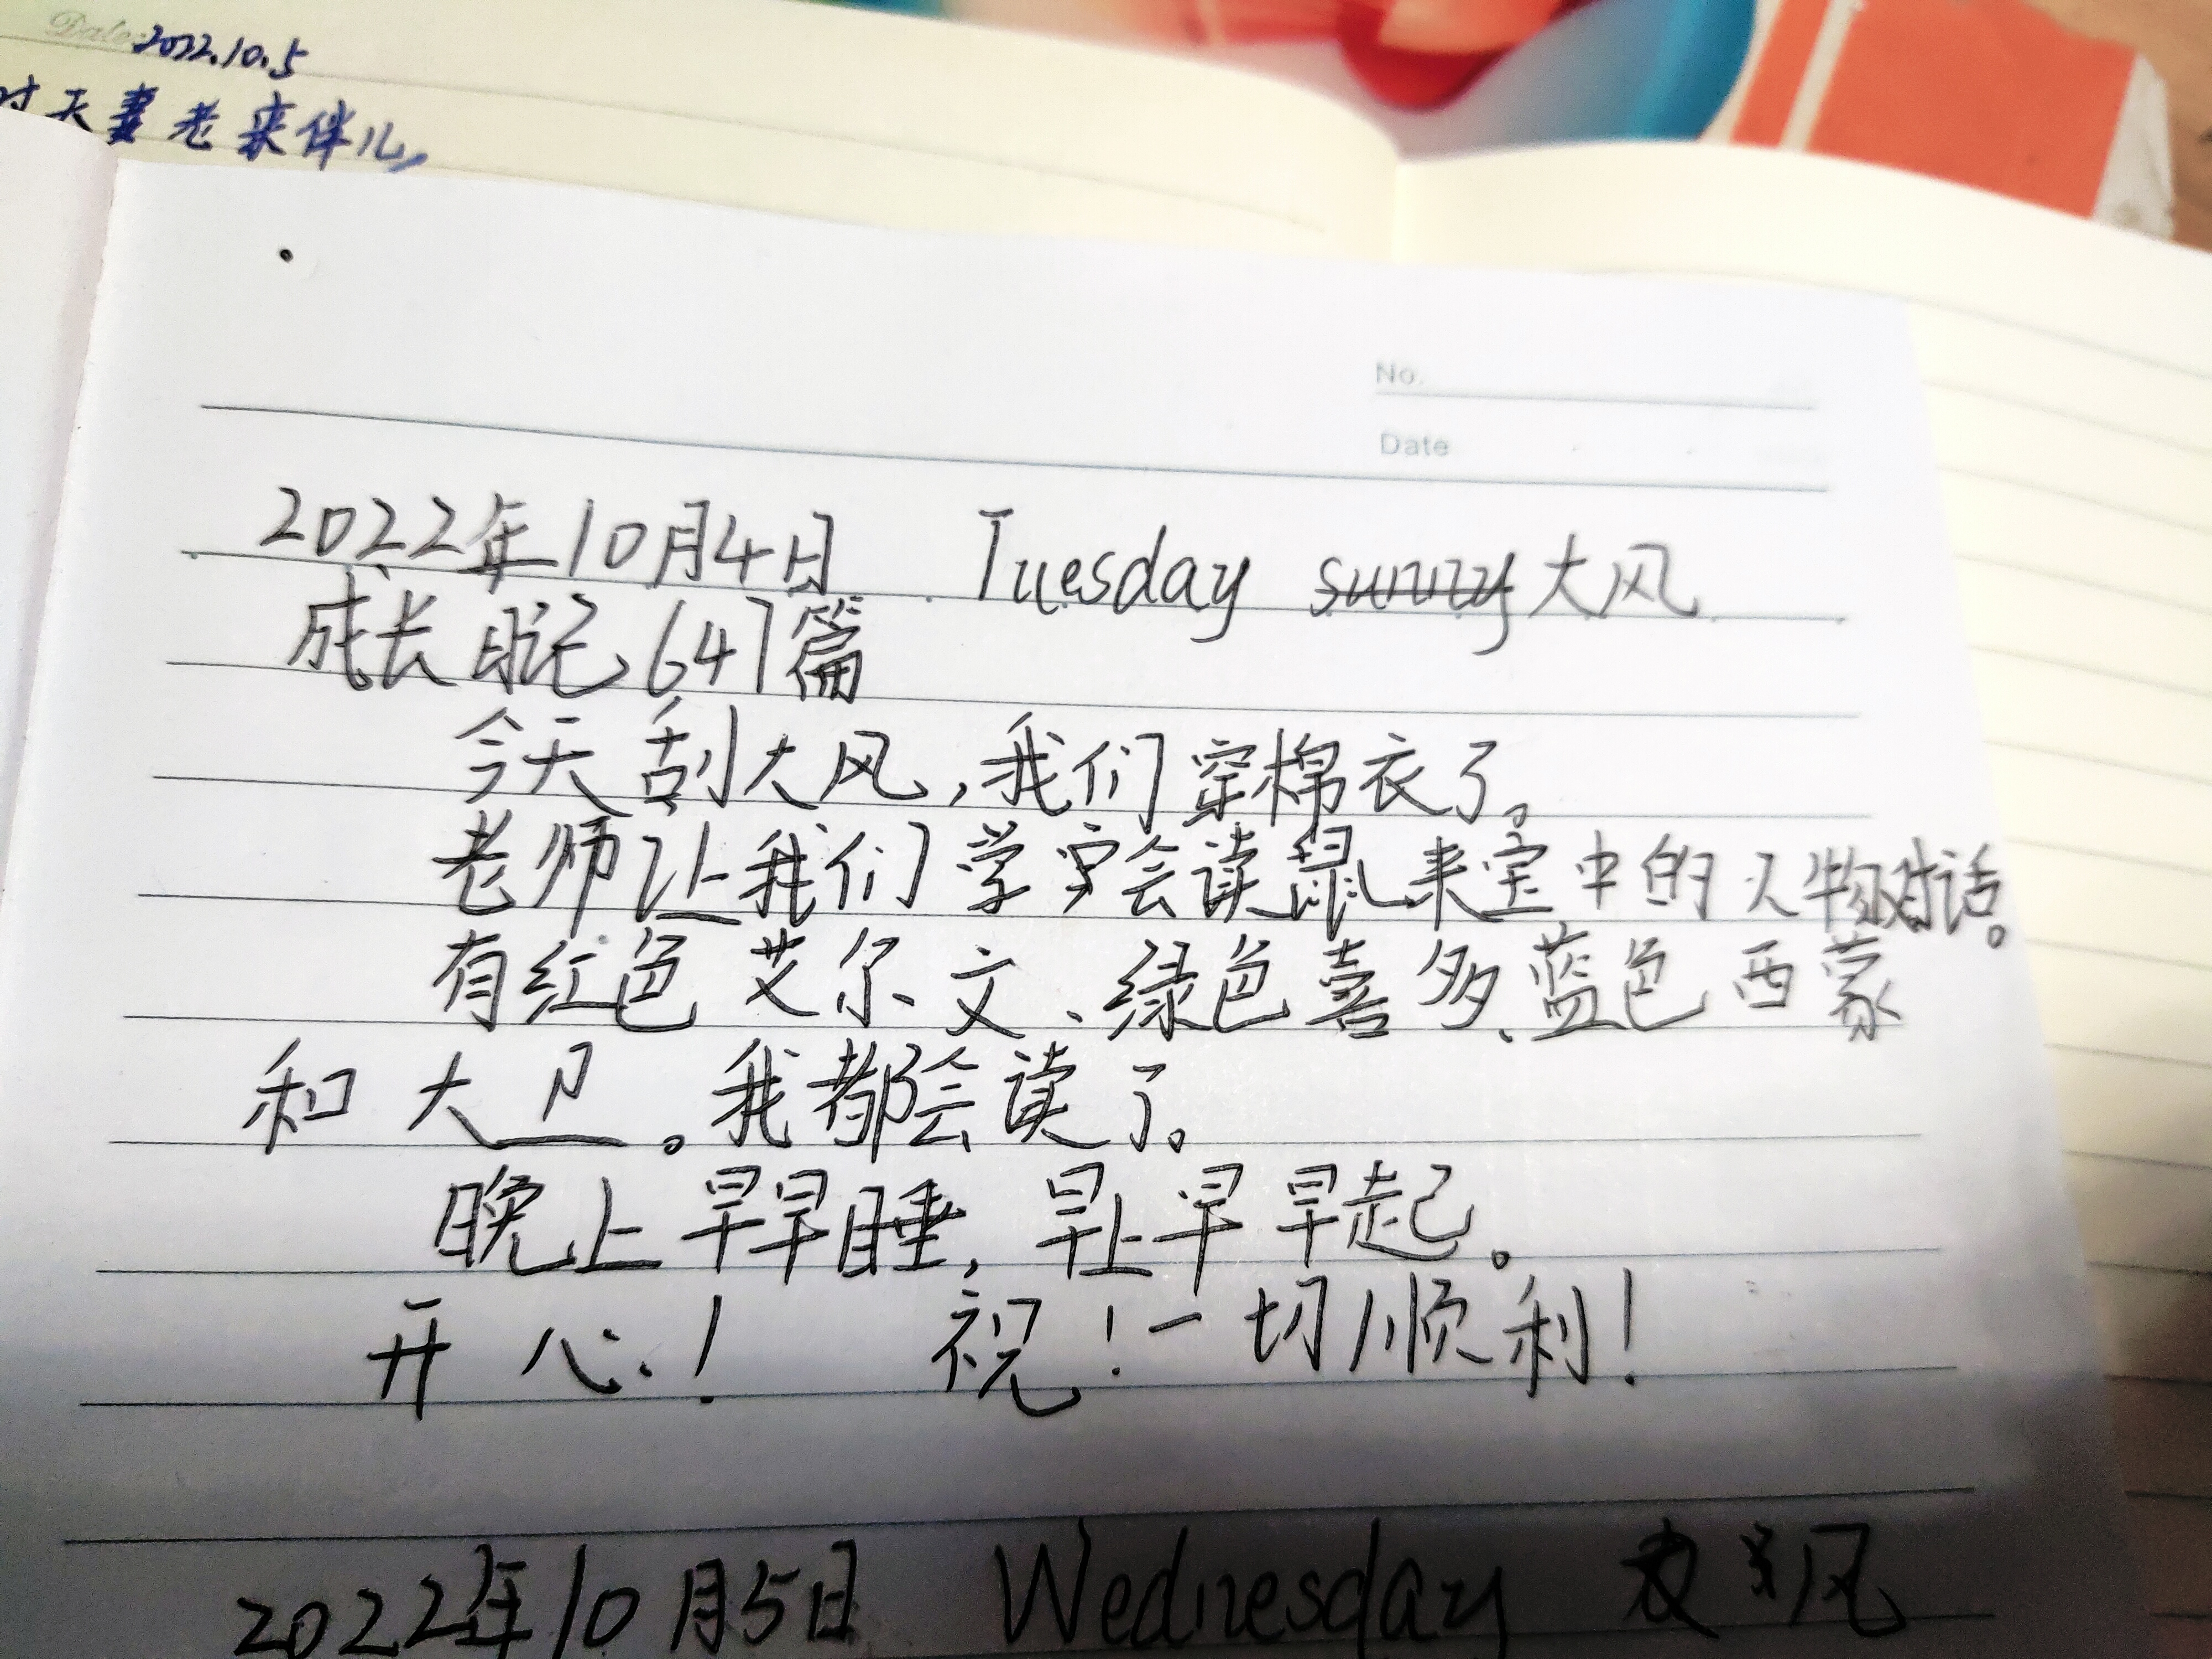 Date 2022.10.5
夫妻老来伴儿,
No.
Date
2022年10月4日 Tuesday sunny大风
成长日记647篇
今天刮大风,我们穿棉衣了。
老师让我们学会读鼠来宝中的人物对话。
有红色艾尔文、绿色喜多、蓝色西蒙
和大卫。我都会读了。
晚上早早睡,早上早早起。
开心!祝!一切顺利!
2022年10月5日 Wednesday 风